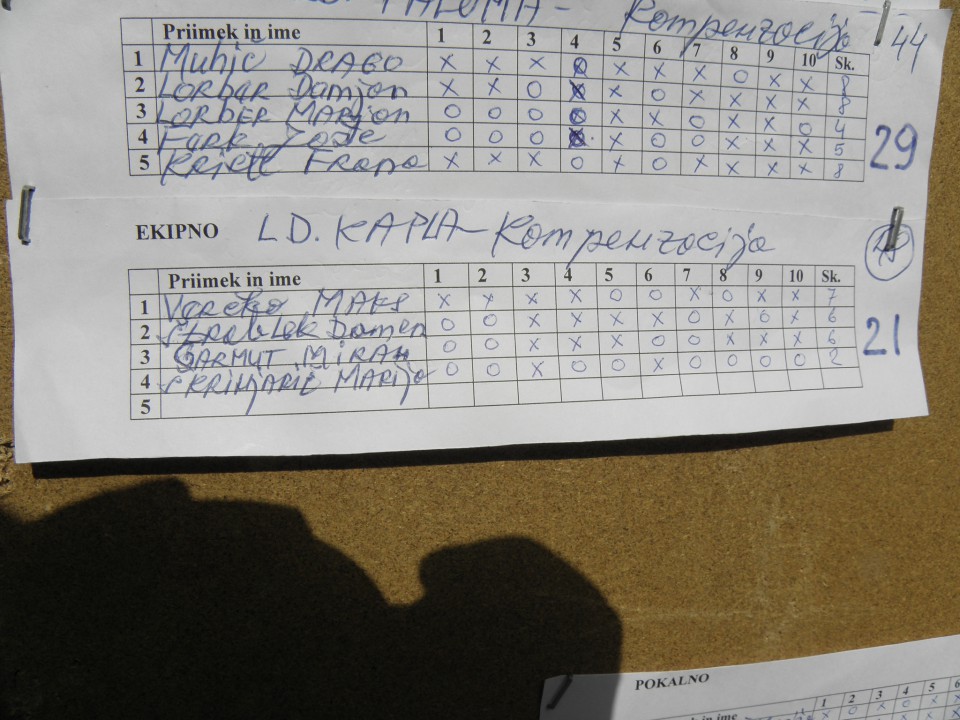 PALOMA - Kompenzacija 44
Priimek in ime 1 2 3 4 5 6 7 8 9 10 Sk.
1 Muhič DRAGO X X X O X X X O X X 8
2 LORBER Damjan X X O X X O X X X X 8
3 LORBER MARJAN O O O O X X O X X O 4
4 O O O X O O X X X 5
5 X X X O X O X X X X 8
29
EKIPNO L.D. KAPLA - Kompenzacija
Priimek in ime 1 2 3 4 5 6 7 8 9 10 Sk.
1 MAKS X X X X O O X O X X 7
2 Damen O O X X X X O X O X 6
3 ŠARMUT MIRAN O O X X X O O X X X 6
4 ŠKRINJARIČ MARIJA O O X O O X O O O O 2
5
21
POKALNO
1 2 3 4 5 6